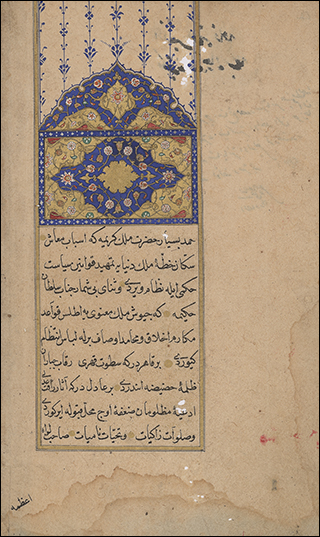 حمد بسیار حضرت ملك کریمه که اسباب معاش
سکان خطهٔ ملك دنیایه تمهید قوانین سیاست
حکمی ایله نظام ویردی و ثنای بی شمار جناب سلطان
حکیمه که جیوش ملك معنوی یه اطلس قواعد
مکارم اخلاق و محامد اوصاف برله لباس انتظام
کیوردی بر قاهر درکه سطوت قهری رقاب جباران
ظلمهٔ حضیضه اندردی بر عادل درکه آثار
مظلومان ضعفهٔ اوج محل قبوله ایرکوردی
وصلوات زاکیات و تحیات نامیات صاحب لواء
اعظمه